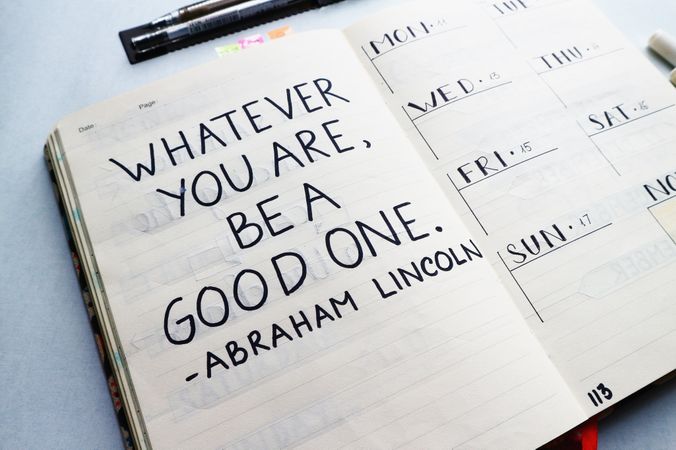 Date
Page
WHATEVER
YOU ARE,
BE A
GOOD ONE.
-ABRAHAM LINCOLN
MON. 11
TUE
WED. 13
THU.
FRI. 15
SAT. 16
SUN. 17
NO
113